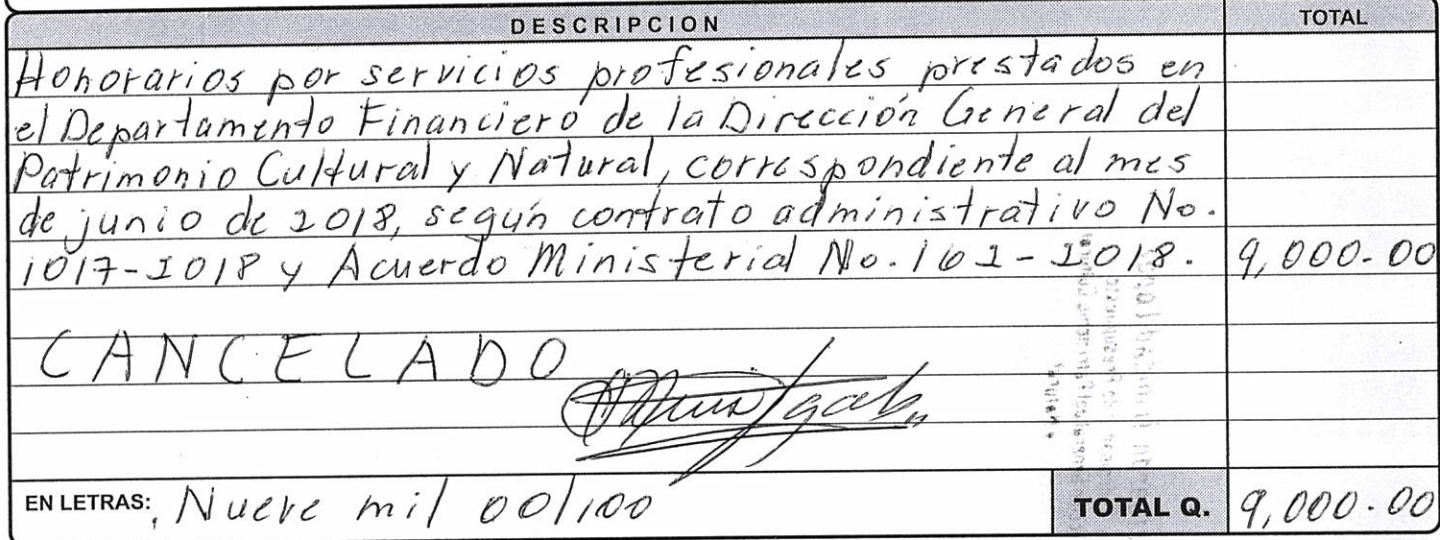 DESCRIPCION TOTAL
Honorarios por servicios profesionales prestados en
el Departamento Financiero de la Dirección General del
Patrimonio Cultural y Natural, correspondiente al mes
de junio de 2018, según contrato administrativo No.
1017-2018 y Acuerdo Ministerial No. 162-2018. 9,000.00
CANCELADO
EN LETRAS: Nueve mil 00/100 TOTAL Q. 9,000.00